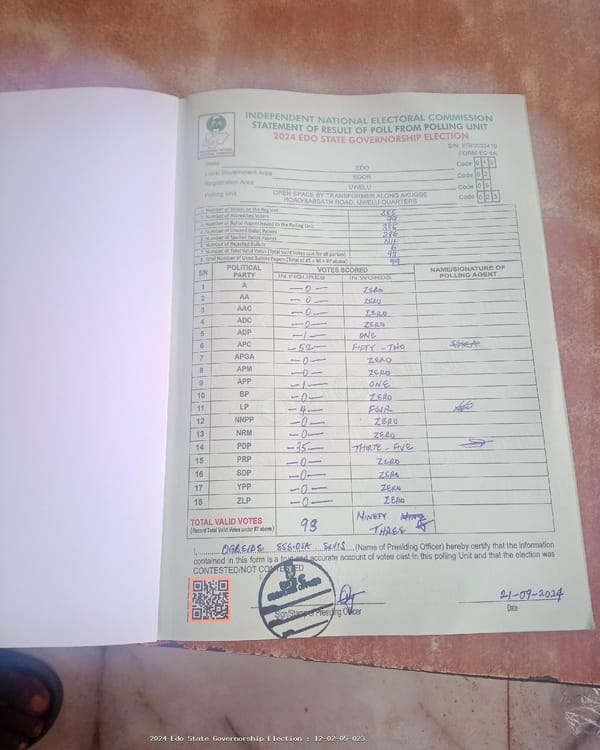 INDEPENDENT NATIONAL ELECTORAL COMMISSION
STATEMENT OF RESULT OF POLL FROM POLLING UNIT
2024 EDO STATE GOVERNORSHIP ELECTION
FORM EC 8A
State EDO Code 0 1 2
Local Government Area EGOR Code 0 2
Registration Area UWELU Code 0 5
Polling Unit OPEN SPACE BY TRANSFORMER ALONG AKUGBE ROAD/SABBATH ROAD, UWELU QUARTERS Code 0 2 3
1. Number of Voters on the Register 385
2. Number of Accredited Voters 99
3. Number of Ballot Papers Issued to the Polling Unit 385
4. Number of Unused Ballot Papers 286
5. Number of Spoiled Ballot Papers Nil
6. Number of Rejected Ballots 6
7. Number of Total Valid Votes (Total Valid Votes cast for all parties) 93
8. Total Number of Used Ballots Papers (Total of #5 + #6 + #7 above) 99
S/N POLITICAL PARTY VOTES SCORED NAME/SIGNATURE OF POLLING AGENT
IN FIGURES IN WORDS
1 A —0— ZERO
2 AA —0— ZERO
3 AAC —0— ZERO
4 ADC —0— ZERO
5 ADP —1— ONE
6 APC —52— FIFTY - TWO
7 APGA —0— ZERO
8 APM —0— ZERO
9 APP —1— ONE
10 BP —0— ZERO
11 LP —4— FOUR
12 NNPP —0— ZERO
13 NRM —0— ZERO
14 PDP —35— THIRTE - FIVE
15 PRP —0— ZERO
16 SDP —0— ZERO
17 YPP —0— ZERO
18 ZLP —0— ZERO
TOTAL VALID VOTES 93 NINETY THREE
(Record Total Valid Votes under #7 above)
I, (Name of Presiding Officer) hereby certify that the information
contained in this form is a true and accurate account of votes cast in this polling Unit and that the election was
CONTESTED/NOT CONTESTED
21-09-2024
Sign/Stamp of Presiding Officer Date
2024 Edo State Governorship Election : 12-02-05-023